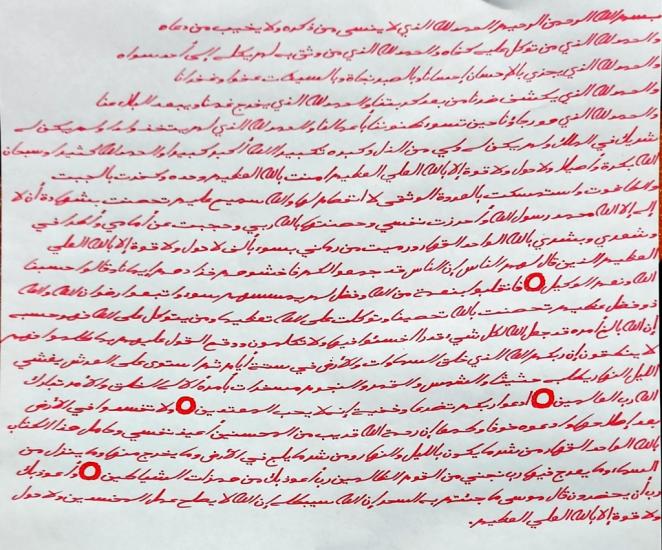 بسم الله الرحمن الرحيم الحمد لله الذي لا ينسى من ذكره ولا يخيب من دعاه
والحمد لله الذي من توكل عليه كفاه والحمد لله الذي من وثق به لم يكله إلى أحد سواه
والحمد لله الذي يجزي بالإحسان إحسانا وبالصبر نجاة وبالسيئات عفوا وغفرانا
والحمد لله الذي يكشف ضرنا من بعد كربتنا والحمد لله الذي يفرج غمنا ويبعد البلاء عنا
والحمد لله الذي هو رجاؤنا حين تسوء ظنوننا بأعمالنا والحمد لله الذي لم يتخذ ولدا ولم يكن له
شريك في الملك ولم يكن له ولي من الذل وكبره تكبيرا الله أكبر كبيرا والحمد لله كثيرا وسبحان
الله بكرة وأصيلا ولا حول ولا قوة إلا بالله العلي العظيم امنت بالله العظيم وحده وكفرت بالجبت
والطاغوت واستمسكت بالعروة الوثقى لا انفصام لها والله سميع عليم تحصنت بشهادة أن لا
إله إلا الله محمد رسول الله وأحرزت نفسي وحصنتها بالله ربي وحجبت عن أمامي وأهلي في
وشعري وبشري بالله الواحد القهار ورميت من رماني بسوء بألف لا حول ولا قوة إلا بالله العلي
العظيم الذين قال لهم الناس إن الناس قد جمعوا لكم فاخشوهم فزادهم إيمانا وقالوا حسبنا
الله ونعم الوكيل فانقلبوا بنعمة من الله وفضل لم يمسسهم سوء واتبعوا رضوان الله والله
ذو فضل عظيم تحصنت بالله تحصينا وتوكلت على الله تعظيما ومن يتوكل على الله فهو حسبه
إن الله بالغ أمره قد جعل الله لكل شيء قدرا اخسئوا فيها ولا تكلمون ووقع القول عليهم بما ظلموا فهم
لا ينطقون إن ربكم الله الذي خلق السماوات والأرض في ستة أيام ثم استوى على العرش يغشي
الليل النهار يطلبه حثيثا والشمس والقمر والنجوم مسخرات بأمره ألا له الخلق والأمر تبارك
الله رب العالمين ادعوا ربكم تضرعا وخفية إنه لا يحب المعتدين ولا تفسدوا في الأرض
بعد إصلاحها وادعوه خوفا وطمعا إن رحمة الله قريب من المحسنين أعيذ نفسي وحامل هذا الكتاب
بالله الواحد القهار من شر ما يكون بالليل والنهار ومن شر ما يلج في الأرض وما يخرج منها وما ينزل من
السماء وما يعرج فيها رب نجني من القوم الظالمين رب أعوذ بك من همزات الشياطين وأعوذ بك
رب أن يحضرون قال موسى ما جئتم به السحر إن الله سيبطله إن الله لا يصلح عمل المفسدين ولا حول
ولا قوة إلا بالله العلي العظيم.